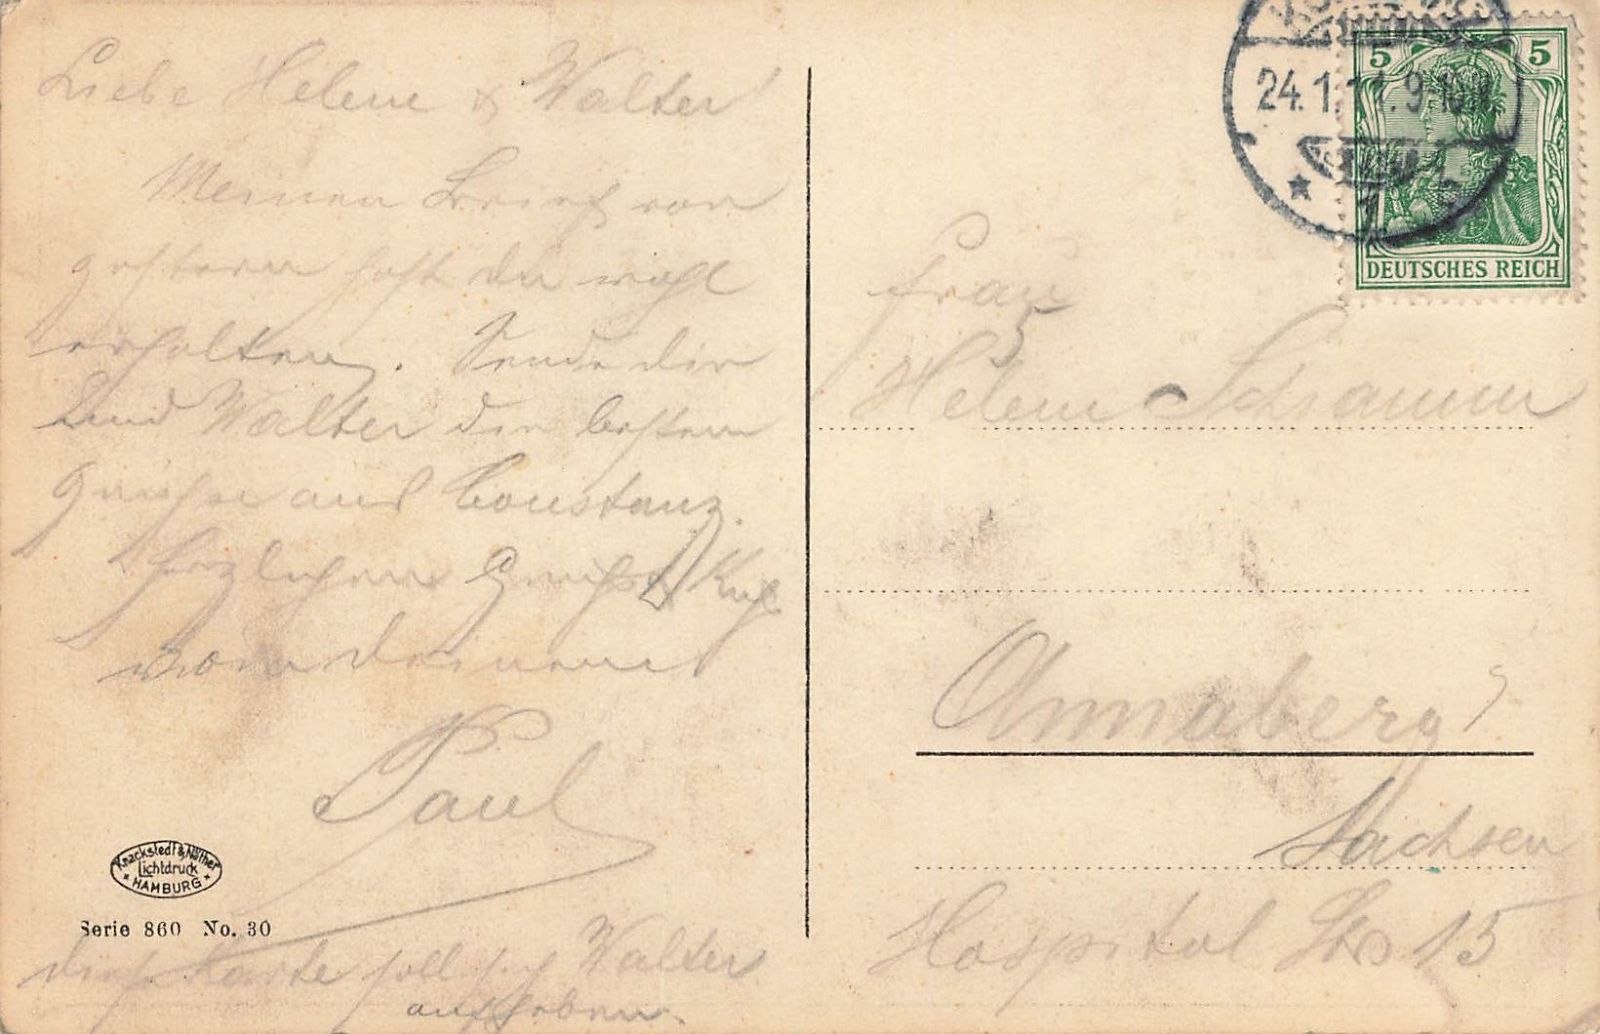 Liebe Helene & Walter
Meinen Brief von
gestern hast du wohl
erhalten. Sende dir
und Walter die besten
Grüsse aus Constanz.
Herzlichen Gruss & Kuß
von deinem
Paul
Knackstedt & Näther
Lichtdruck
HAMBURG
Serie 860 No. 30
diese Karte soll sich Walter
aufheben.
24.1.11.9-10V.
1
5 5
DEUTSCHES REICH
Frau
5
Helene Schramm
Annaberg
Sachsen
Hospital Str 15